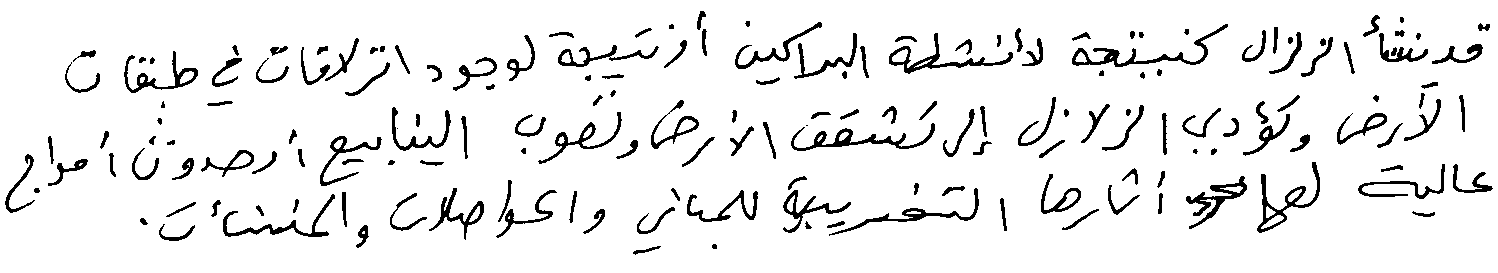 قد ينشأ الزلزال كنتيجة لأنشطة البراكين أو نتيجة لوجود انزلاقات في طبقات
الأرض وتؤدي الزلازل إلى تشقق الأرض ونضوب الينابيع أو حدوث أمواج
عالية لها آثارها التخريبية للمباني والمواصلات والمنشأت.